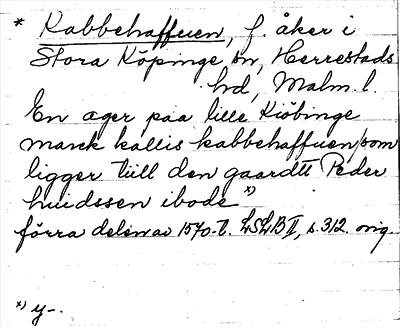 * Kabbehaffuen, f. åker i
Stora Köpinge sn, Herrestads
hd, Malm. l.
En ager paa lille Kiöbinge
marck kallis kabbehaffuen som
ligger till den gaardtt Peder
huidssen ibode x)
förra delen av 1570-t. LSLB II, s. 312. orig.
x) y-.